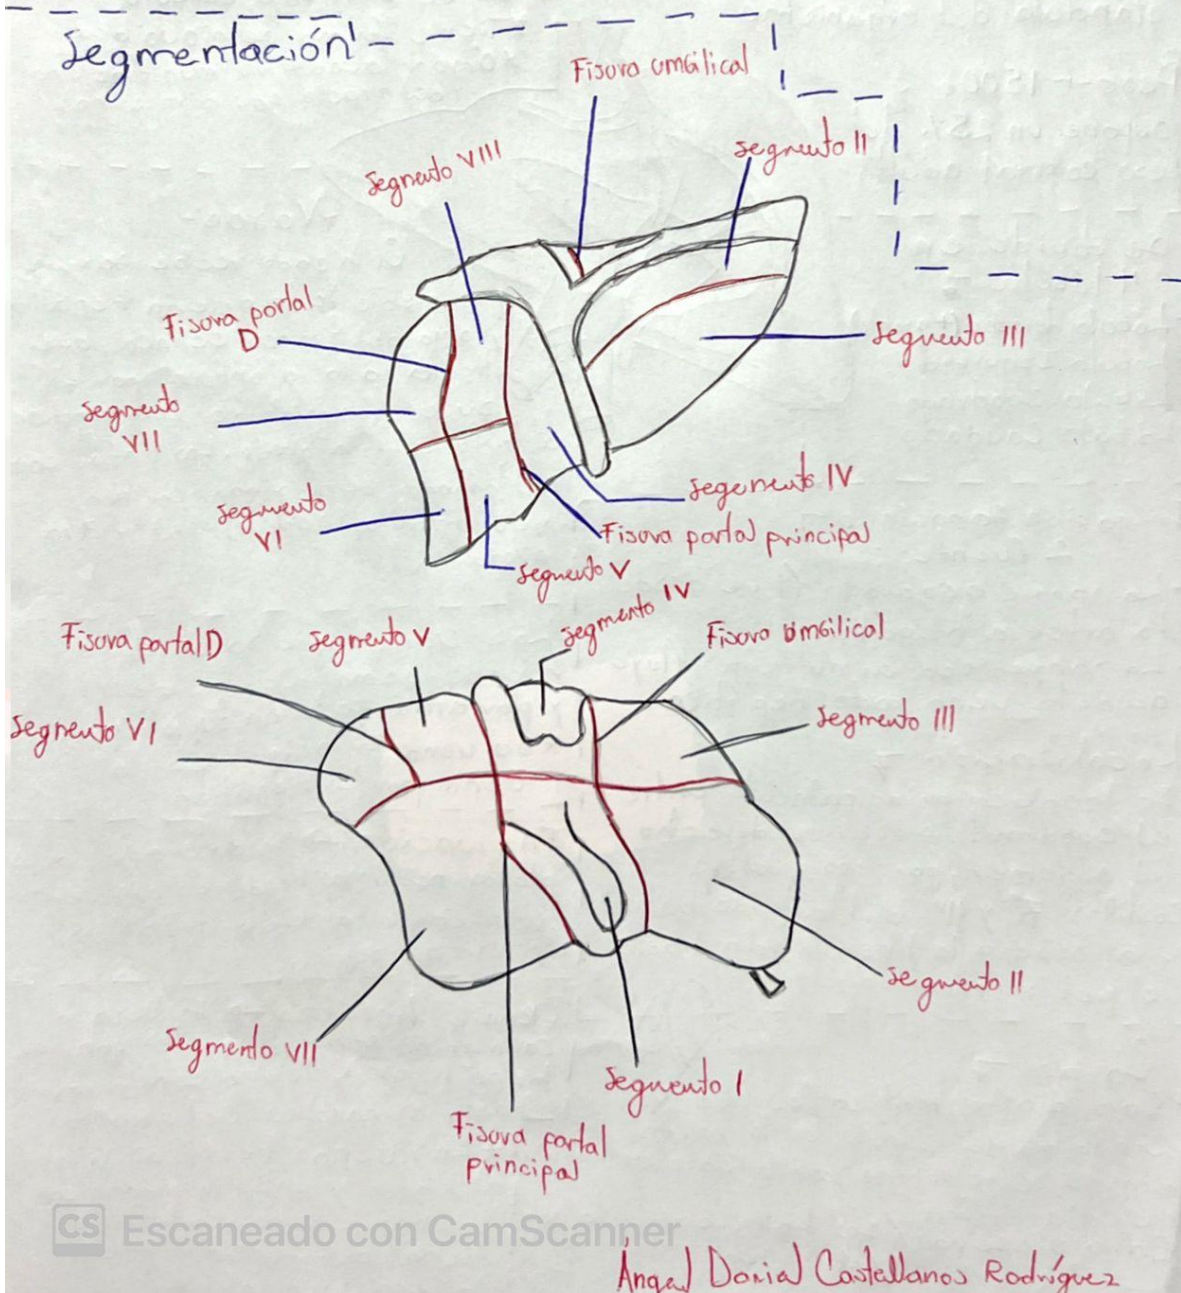 Segmentación
Fisura umbilical
segmento II
Segmento VIII
Fisura portal
D
Segmento III
Segmento
VII
Segemento IV
Segmento
VI
Fisura portal principal
Segmento V
Segmento IV
Fisura portal D
Segmento V
Fisura umbilical
Segmento VI
Segmento III
Segmento II
Segmento VII
Segmento I
Fisura portal
principal
CS Escaneado con CamScanner
Ángel Dorial Castellanos Rodríguez